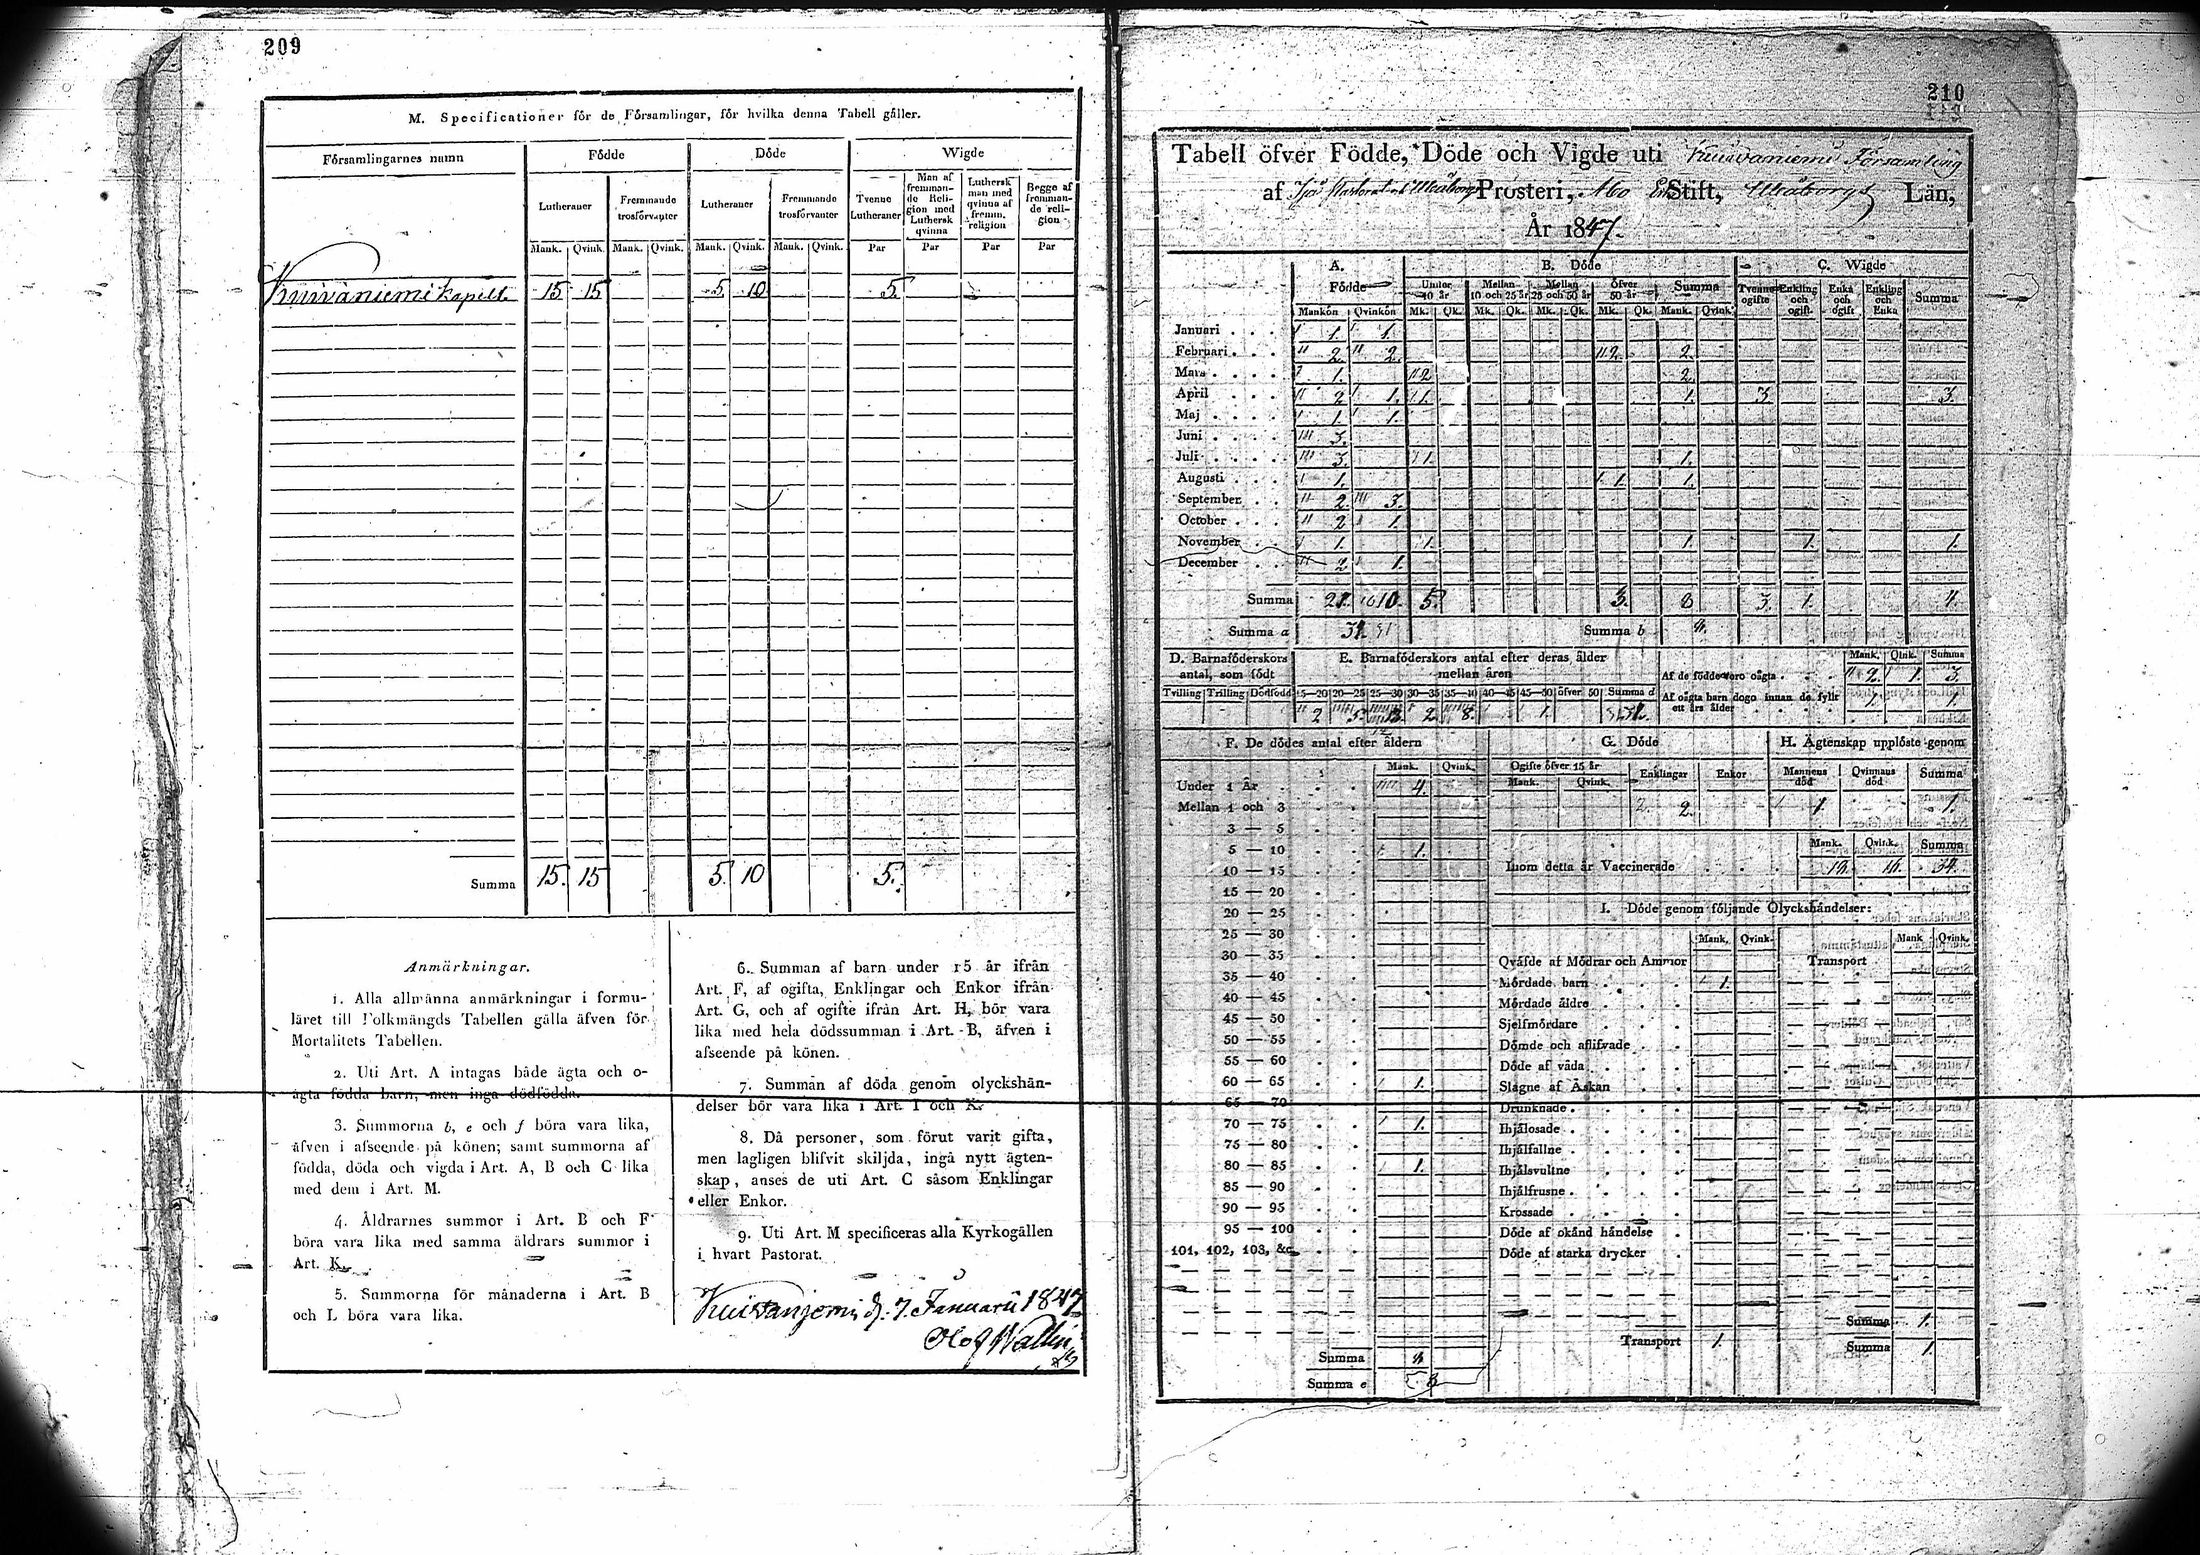 209
M. Specificationer för de Församlingar, för hvilka denna Tabell gäller.
Församlingarnes namn Födde Döde Wigde
Lutheraner Fremmande trosförvanter Lutheraner Fremmande trosförvanter Tvenne Lutheraner Man af fremmande Religion med Luthersk qvinna Luthersk man med qvinna af fremm. religion Begge af fremmande religion
Mank. Qvink. Mank. Qvink. Mank. Qvink. Mank. Qvink. Par Par Par Par
Kuivaniemi kapell 15 15 5 10 5.
Summa 15. 15 5. 10 5.
Anmärkningar.
1. Alla allmänna anmärkningar i formu-
läret till Folkmängds Tabellen gälla äfven för
Mortalitets Tabellen.
2. Uti Art. A intagas både ägta och o-
ägta födda barn, men inga dödfödda.
3. Summorna b, e och f böra vara lika,
äfven i afseende på könen; samt summorna af
födda, döda och vigda i Art. A, B och C lika
med dem i Art. M.
4. Åldrarnes summor i Art. B och F
böra vara lika med samma äldrars summor i
Art. K.
5. Summorna för månaderna i Art. B
och L böra vara lika.
6. Summan af barn under 15 år ifrån
Art. F, af ogifta, Enklingar och Enkor ifrån
Art. G, och af ogifte ifrån Art. H, bör vara
lika med hela dödssumman i Art. B, äfven i
afseende på könen.
7. Summan af döda genom olyckshän-
delser bör vara lika i Art. I och K.
8. Då personer, som förut varit gifta,
men lagligen blifvit skiljda, ingå nytt ägten-
skap, anses de uti Art. C såsom Enklingar
eller Enkor.
9. Uti Art. M specificeras alla Kyrkogällen
i hvart Pastorat.
Kuivanjemi d. 7. Januarii 1847
Olof Wallin
210
Tabell öfver Födde, Döde och Vigde uti Kuivaniemi Församling
af Ijo Pastorat och Uleåborgs Prosteri, Åbo Stift, Uleåborgs Län,
År 1847.
A. Födde B. Döde C. Wigde
Under 10 år Mellan 10 och 25 år Mellan 25 och 50 år Öfver 50 år Summa Tvenne ogifte Enkling och ogift Enka och ogift Enkling och Enka Summa
Mankön Qvinkön Mk. Qk. Mk. Qk. Mk. Qk. Mk. Qk. Mank. Qvink.
Januari 1. 1.
Februari 2. 2. 2. 2.
Mars 1. 2 2.
April 2 1. 1. 1. 3. 3.
Maj 1. 1.
Juni 3.
Juli 3. 1. 1.
Augusti 1. 1. 1.
September 2. 3.
October 2 1.
November 1. 1. 1. 1. 1.
December 2. 1.
Summa 21. 10. 5. 3. 8 3. 1. 4.
Summa a 31. 31 Summa b 8.
D. Barnaföderskors antal, som födt E. Barnaföderskors antal efter deras ålder mellan åren Mank. Qink. Summa
Tvilling Trilling Dödfödd 15—20 20—25 25—30 30—35 35—40 40—45 45—50 öfver 50 Summa d
2 5. 13. 2. 8. 1. 31.
Af de födde voro oägta 2. 1. 3.
Af oägta barn dogo innan de fyllt ett års ålder 1. 1.
F. De dödes antal efter åldern G. Döde H. Ägtenskap upplöste genom
Mank. Qvink. Ogifte öfver 15 år Mank. Qvink. Enklingar Enkor Mannens död Qvinnans död Summa
2. 1. 1.
Under 1 År 4.
Mellan 1 och 3
3 — 5
5 — 10 1.
10 — 15
15 — 20
20 — 25
25 — 30
30 — 35
35 — 40
40 — 45
45 — 50
50 — 55
55 — 60
60 — 65 1.
65 — 70
70 — 75 1.
75 — 80
80 — 85 1.
85 — 90
90 — 95
95 — 100
101, 102, 103, &c.
Summa 8
Summa e 8
Mank. Qvink. Summa
Inom detta år Vaccinerade 34.
I. Döde genom följande Olyckshändelser:
Mank. Qvink. Mank Qvink.
Qväfde af Mödrar och Ammor Transport
Mördade barn 1.
Mördade äldre
Sjelfmördare
Dömde och aflifvade
Döde af våda
Slagne af Åskan
Drunknade
Ihjälosade
Ihjälfallne
Ihjälsvultne
Ihjälfrusne
Krossade
Döde af okänd händelse
Döde af starka drycker
Summa 1.
Transport 1. Summa 1.